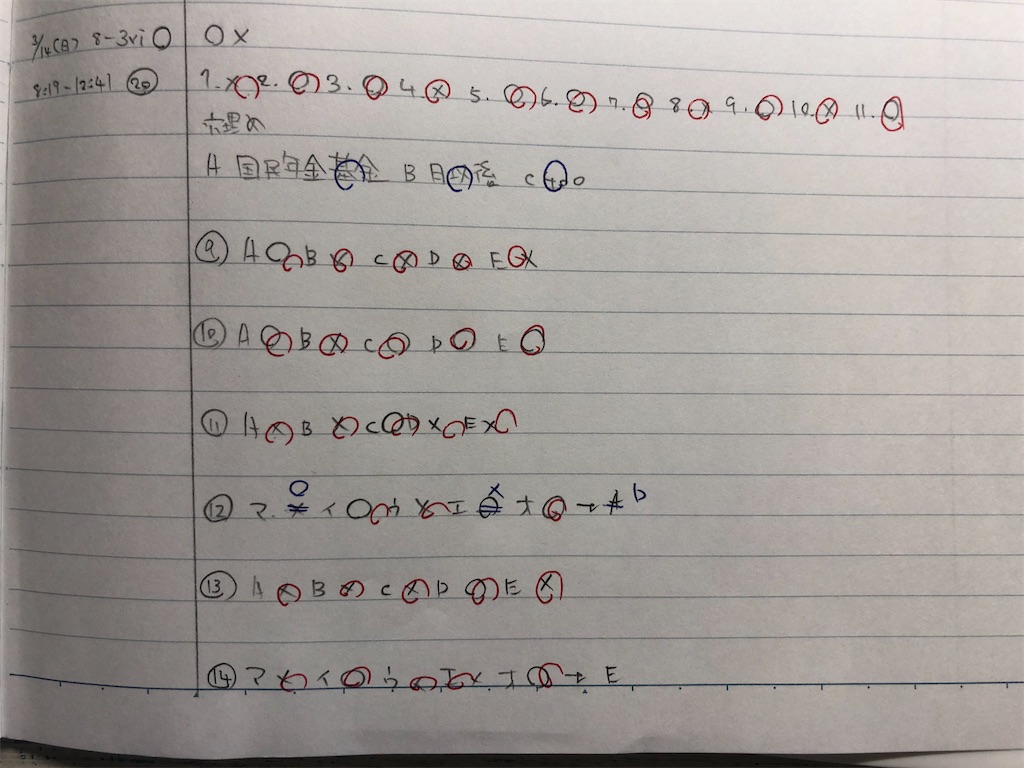 3/14(日) 8-3vi ○ ○ ×
8:19-12:41 ⑳ 1. × 2. ○ 3. ○ 4. × 5. ○ 6. ○ 7. ○ 8 × 9. ○ 10. × 11. ○
穴埋め
A 国民年金基金 B 月以後 C
⑨ A ○ B × C × D × E ×
⑩ A ○ B × C ○ D ○ E ○
⑪ A × B × C ○ D × E ×
⑫ ア. ○ イ ○ ウ × エ × オ ○ → D
⑬ A × B × C × D ○ E ×
⑭ ア × イ ○ ウ ○ エ × オ ○ → E